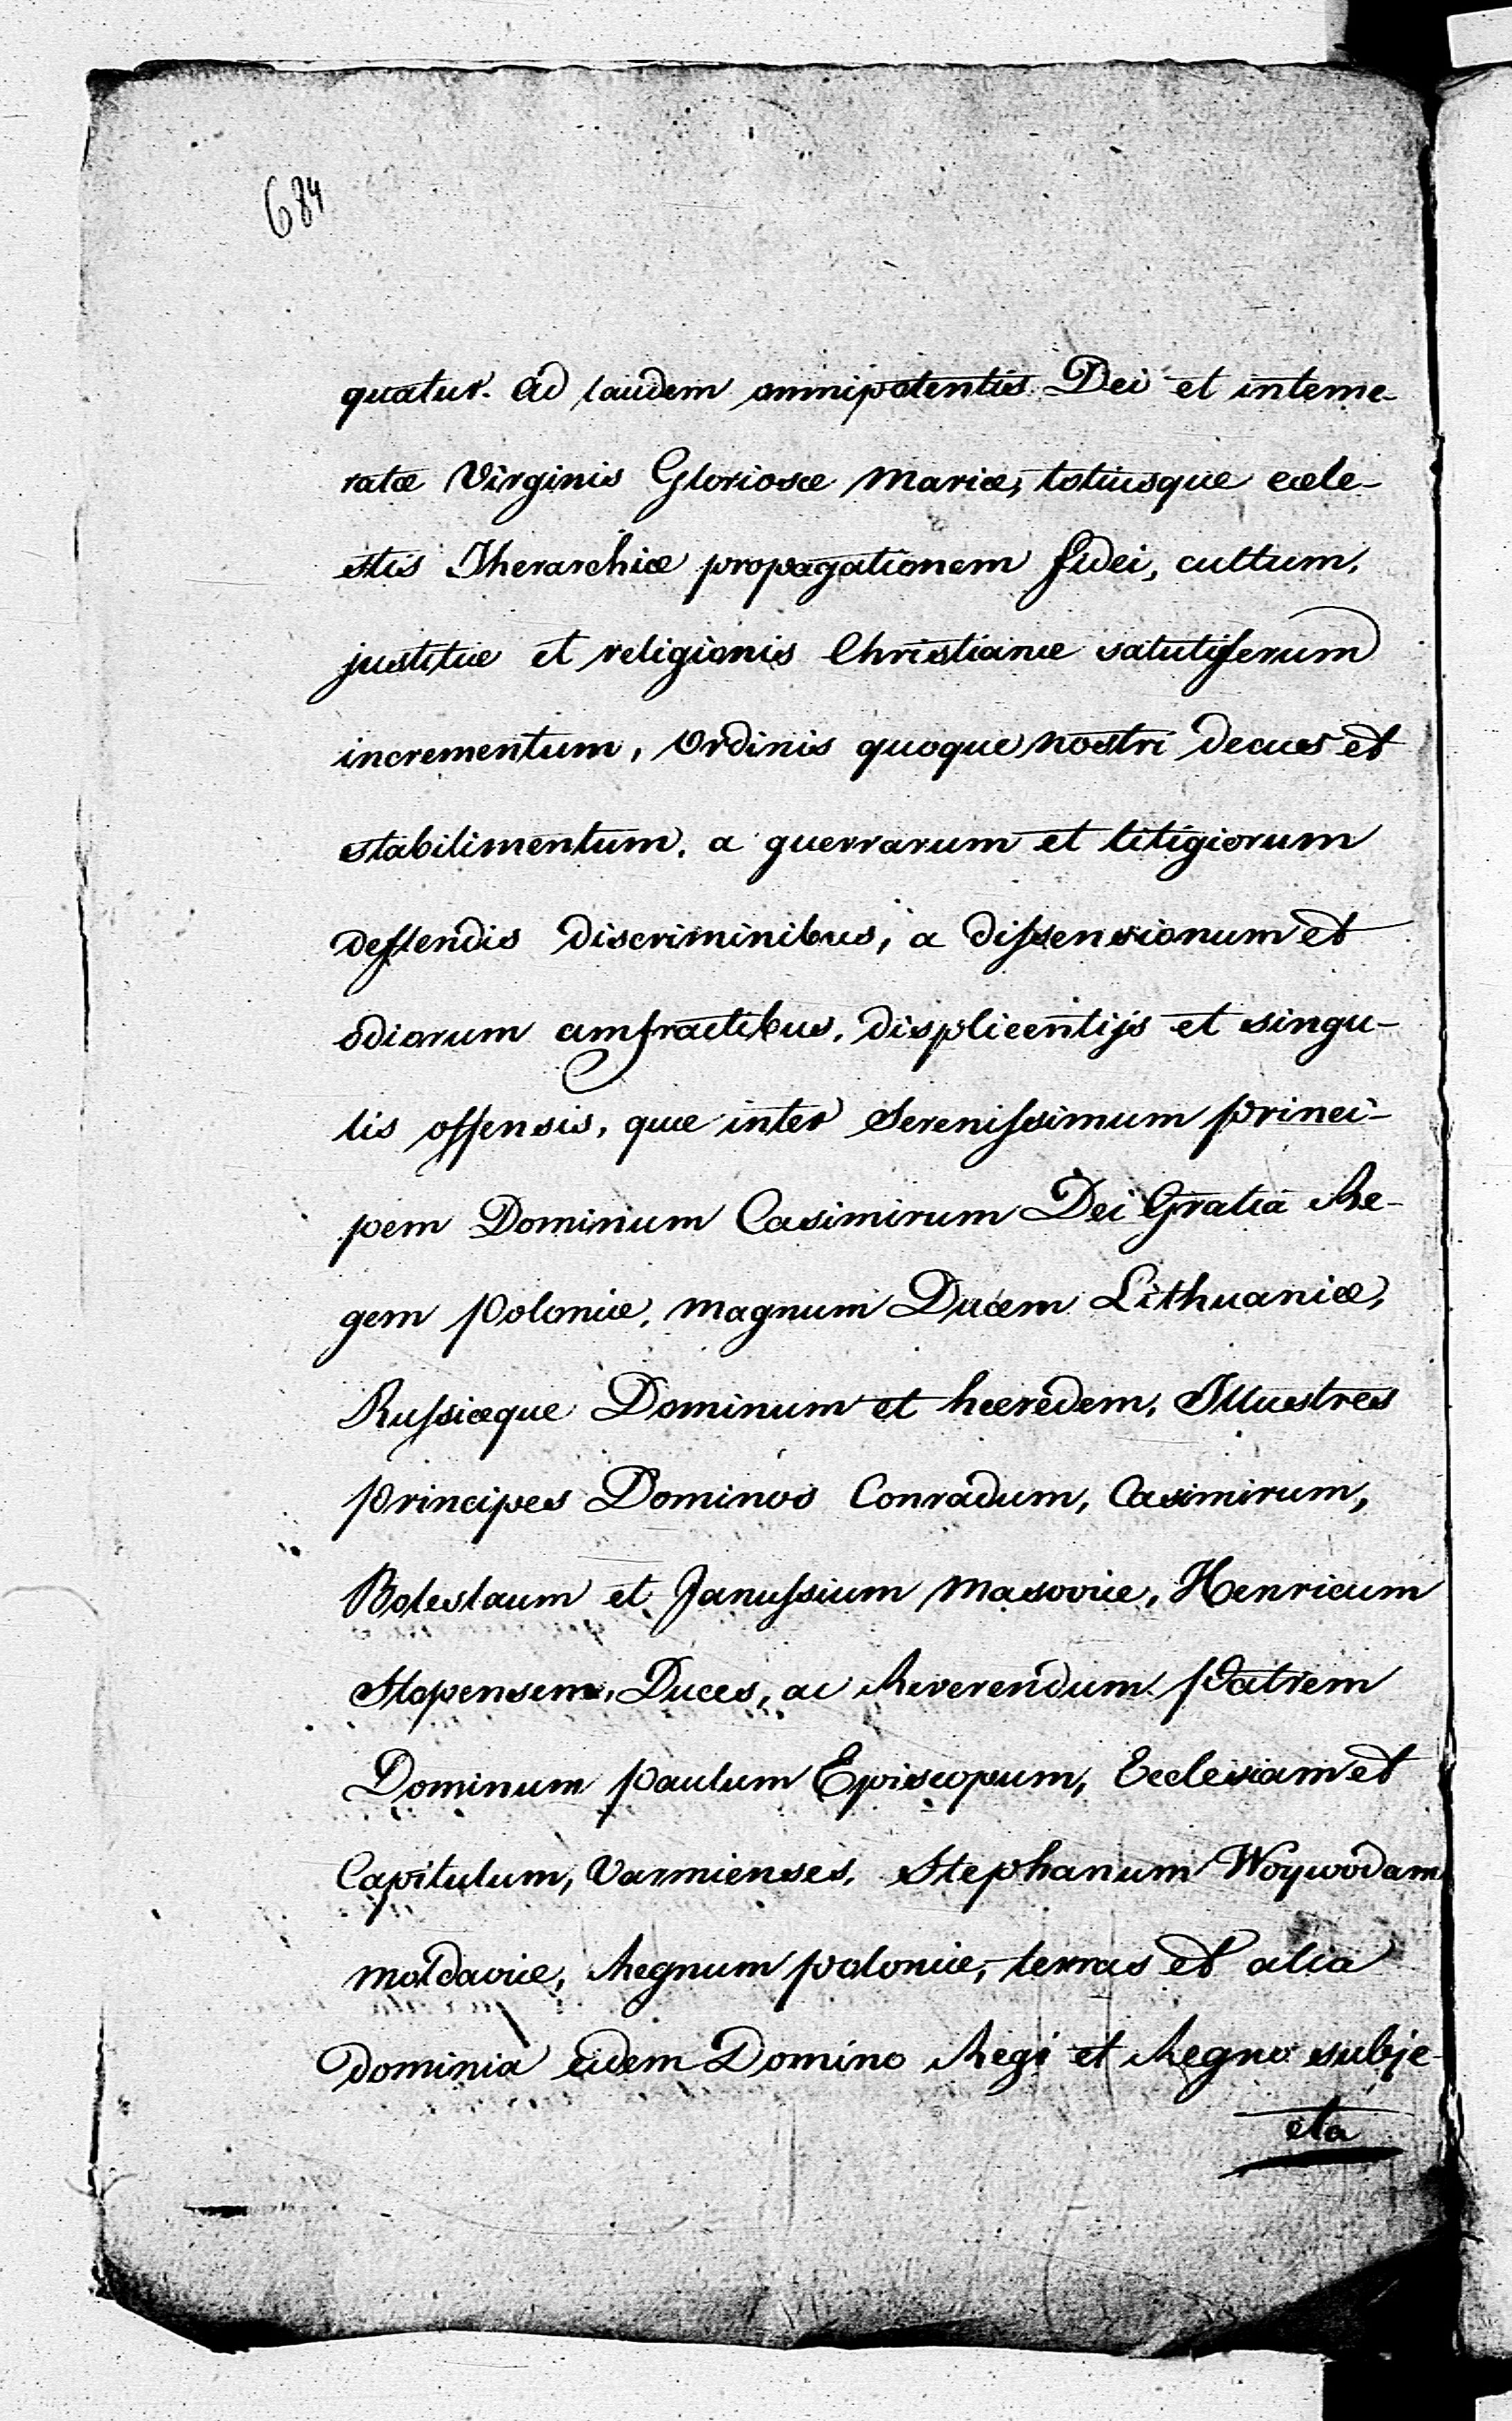 684
quatur. Ad laudem omnipotentis Dei et inteme-
ratæ Virginis Gloriosæ Mariæ, totiusque cæle-
stis Iherarchiæ propagationem fidei, cultum,
justitiæ et religionis Christianæ salutiferum
incrementum, Ordinis quoque nostri decus et
stabilimentum, a guerrarum et litigiorum
deflendis discriminibus, a dissensionum et
odiorum amfractibus, displicentijs et singu-
lis offensis, quæ inter Serenissimum Princi-
pem Dominum Casimirum Dei Gratia Re-
gem Poloniæ, Magnum Ducem Lithuaniæ,
Russiæque Dominum et hæredem, Illustres
Principes Dominos Conradum, Casimirum,
Boleslaum et Janussium Masoviæ, Henricum
Stopensem, Duces, ac Reverendum Patrem
Dominum Paulum Episcopum, Ecclesiam et
Capitulum, Varmienses, Stephanum Woywodam
Moldaviæ, Regnum Poloniæ, terras et alia
dominia eidem Domino Regi et Regno subje-
cta